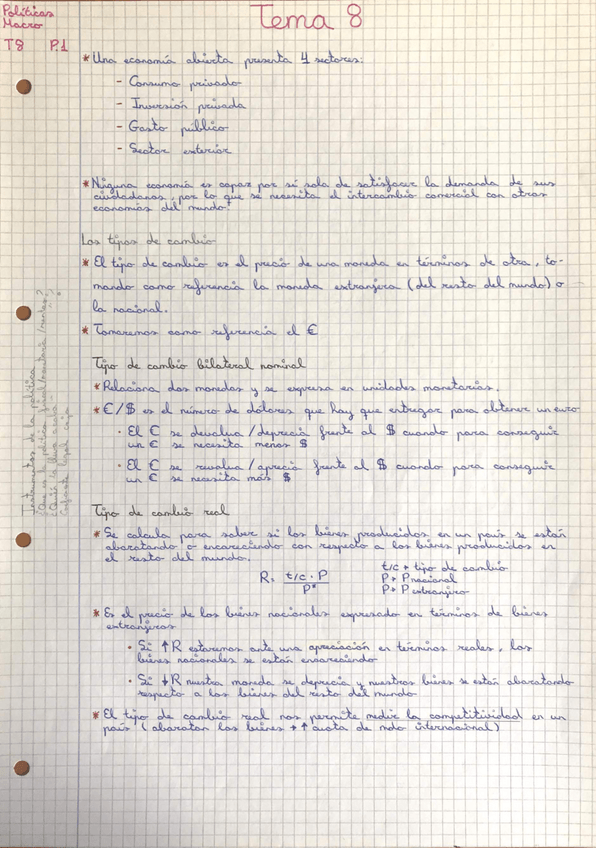 Políticas
Macro
T8 P.1
Tema 8
* Una economía abierta presenta 4 sectores:
- Consumo privado
- Inversión privada
- Gasto público
- Sector exterior
* Ninguna economía es capaz por sí sola de satisfacer la demanda de sus
ciudadanos, por lo que se necesita el intercambio comercial con otras
economías del mundo.
Los tipos de cambio
* El tipo de cambio es el precio de una moneda en términos de otra, to-
mando como referencia la moneda extranjera (del resto del mundo) o
la nacional.
* Tomaremos como referencia el €
Tipo de cambio bilateral nominal
* Relaciona dos monedas y se expresa en unidades monetarias.
* €/$ es el número de dólares que hay que entregar para obtener un euro
· El € se devalua/deprecia frente al $ cuando para conseguir
un € se necesita menos $
· El € se revalua/aprecia frente al $ cuando para conseguir
un € se necesita más $
Tipo de cambio real
* Se calcula para saber si los bienes producidos en un país se están
abaratando o encareciendo con respecto a los bienes producidos en
el resto del mundo.
R = t/c · P / P*
t/c → tipo de cambio
P → P nacional
P* → P extranjero
* Es el precio de los bienes nacionales expresado en términos de bienes
extranjeros
· Si ↑R estaremos ante una apreciación en términos reales, los
bienes nacionales se están encareciendo
· Si ↓R nuestra moneda se deprecia y nuestros bienes se están abaratando
respecto a los bienes del resto del mundo
* El tipo de cambio real nos permite medir la competitividad en un
país (abaratan los bienes → ↑ cuota de mdo internacional)
Instrumentos de la política